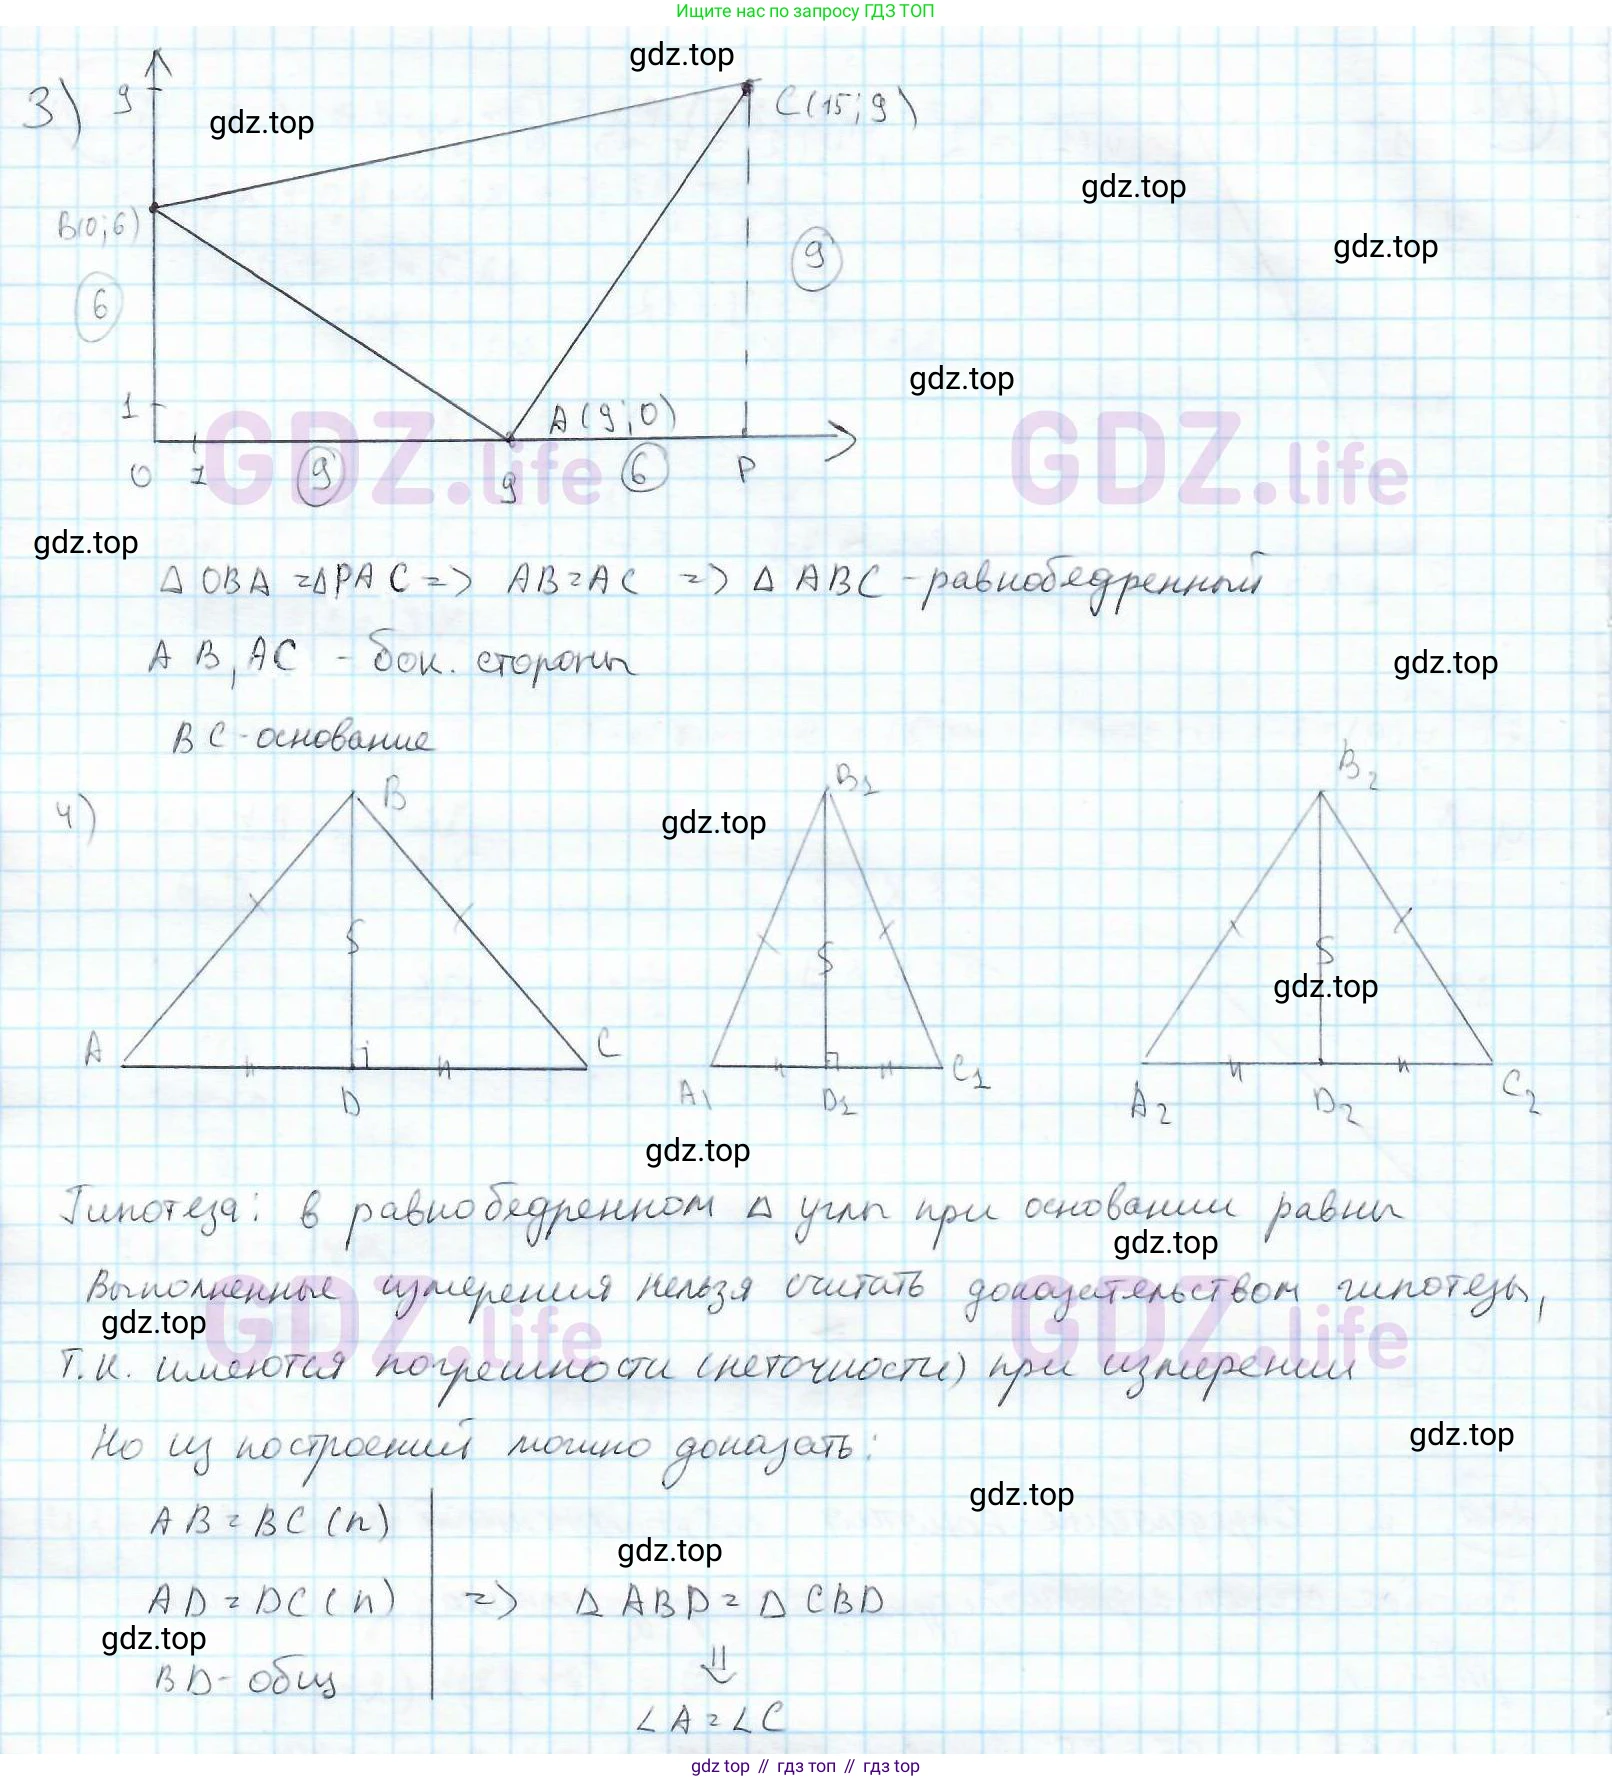 Ищите нас по запросу ГДЗ ТОП
gdz.top
3)
9
C(15;9)
gdz.top
gdz.top
B(0;6)
gdz.top
9
6
gdz.top
1
A(9;0)
GDZ.life
GDZ.life
0
1
9
9
6
P
gdz.top
Δ OBA = Δ PAC => AB = AC => Δ ABC - равнобедренный
AB, AC - бок. стороны
gdz.top
BC - основание
4)
B
B1
B2
gdz.top
gdz.top
A
D
C
A1
D1
C1
A2
D2
C2
gdz.top
Гипотеза: в равнобедренном Δ углы при основании равны
gdz.top
Выполненные измерения нельзя считать доказательством гипотезы,
gdz.top
GDZ.life
GDZ.life
т.к. имеются погрешности (неточности) при измерении
gdz.top
Но из построений можно доказать:
gdz.top
AB = BC (п)
gdz.top
AD = DC (п) => Δ ABD = Δ CBD
gdz.top
BD - общ
∠A = ∠C
gdz top // гдз топ // gdz top